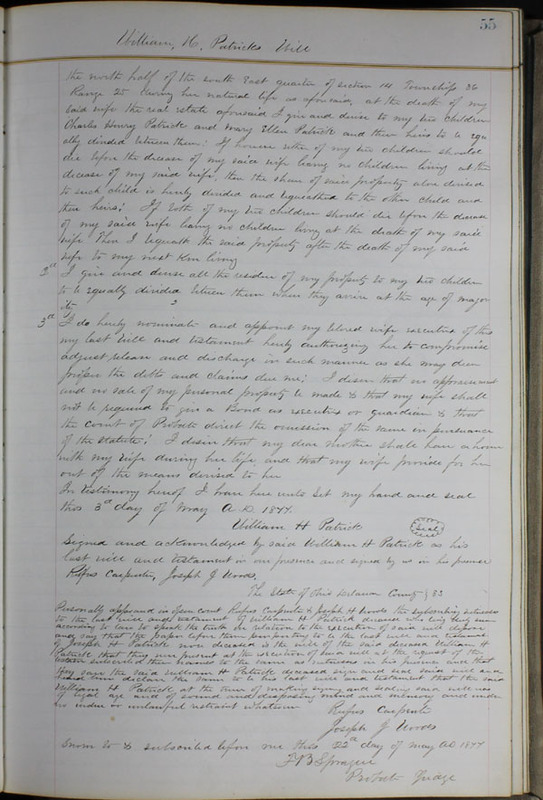 55
William, H, Patricks Will
the north half of the south East quarter of section 14 Township 36
Range 25 during her natural life as aforesaid, at the death of my
said wife the real estate aforesaid I give and devise to my two children
Charles Henry Patrick and Mary Ellen Patrick and their heirs to be equ
ally divided between them: If however either of my two children should
die before the decease of my said wife leaving no children living at the
decease of my said wife, then the share of said property above devised
to such child is hereby devised and bequeathed to the other child and
their heirs: If both of my two children should die before the decease
of my said wife leaving no children living at the death of my said
wife Then I bequeath the said property after the death of my said
wife to my next kin living
2nd I give and devise all the residue of my property to my two children
to be equally divided between them when they arrive at the age of major
ity
3d I do hereby nominate and appoint my beloved wife executrix of this
my last will and testament hereby authorizing her to compromise
adjust release and discharge in such manner as she may deem
proper the debts and claims due me: I desire that no appraisement
and no sale of my personal property be made & that my wife shall
not be required to give a Bond as executrix or guardian & that
the court of Probate direct the omission of the same in pursuance
of the statute: I desire that my dear Mother shall have a home
with my wife during her life and that my wife provide for her
out of the means devised to her
In testimony hereof I have here unto set my hand and seal
this 3d day of May A.D. 1877.
William H Patrick Seal
Signed and acknowledged by said William H Patrick as his
last will and testament in our presence and signed by us in his presence
Rufus Carpenter, Joseph J Woods.
The State of Ohio Delaware County } SS
Personally appeared in open court Rufus Carpenter & Joseph H Woods the subscribing witnesses
to the last will and testament of William H Patrick deceased who being duly sworn
according to law to speak the truth in relation to the execution of said will depose
and say that the paper before them purporting to be the last will and testament
of Joseph H Patrick now deceased is the will of the said deceased William H
Patrick that they were present at the execution of said will & at the request of the
testator subscribed their names to the same as witnesses in his presence and that
they saw the said William H Patrick deceased sign and seal said will and
heard him declare the same to be his last will and testament that the said
William H Patrick at the time of making signing and sealing said will was
of legal age and of sound and disposing mind and memory and under
no undue or unlawful restraint whatsoever
Rufus Carpenter
Joseph J Woods
Sworn to & subscribed before me this 22nd day of May AD 1877
F B Sprague
Probate Judge